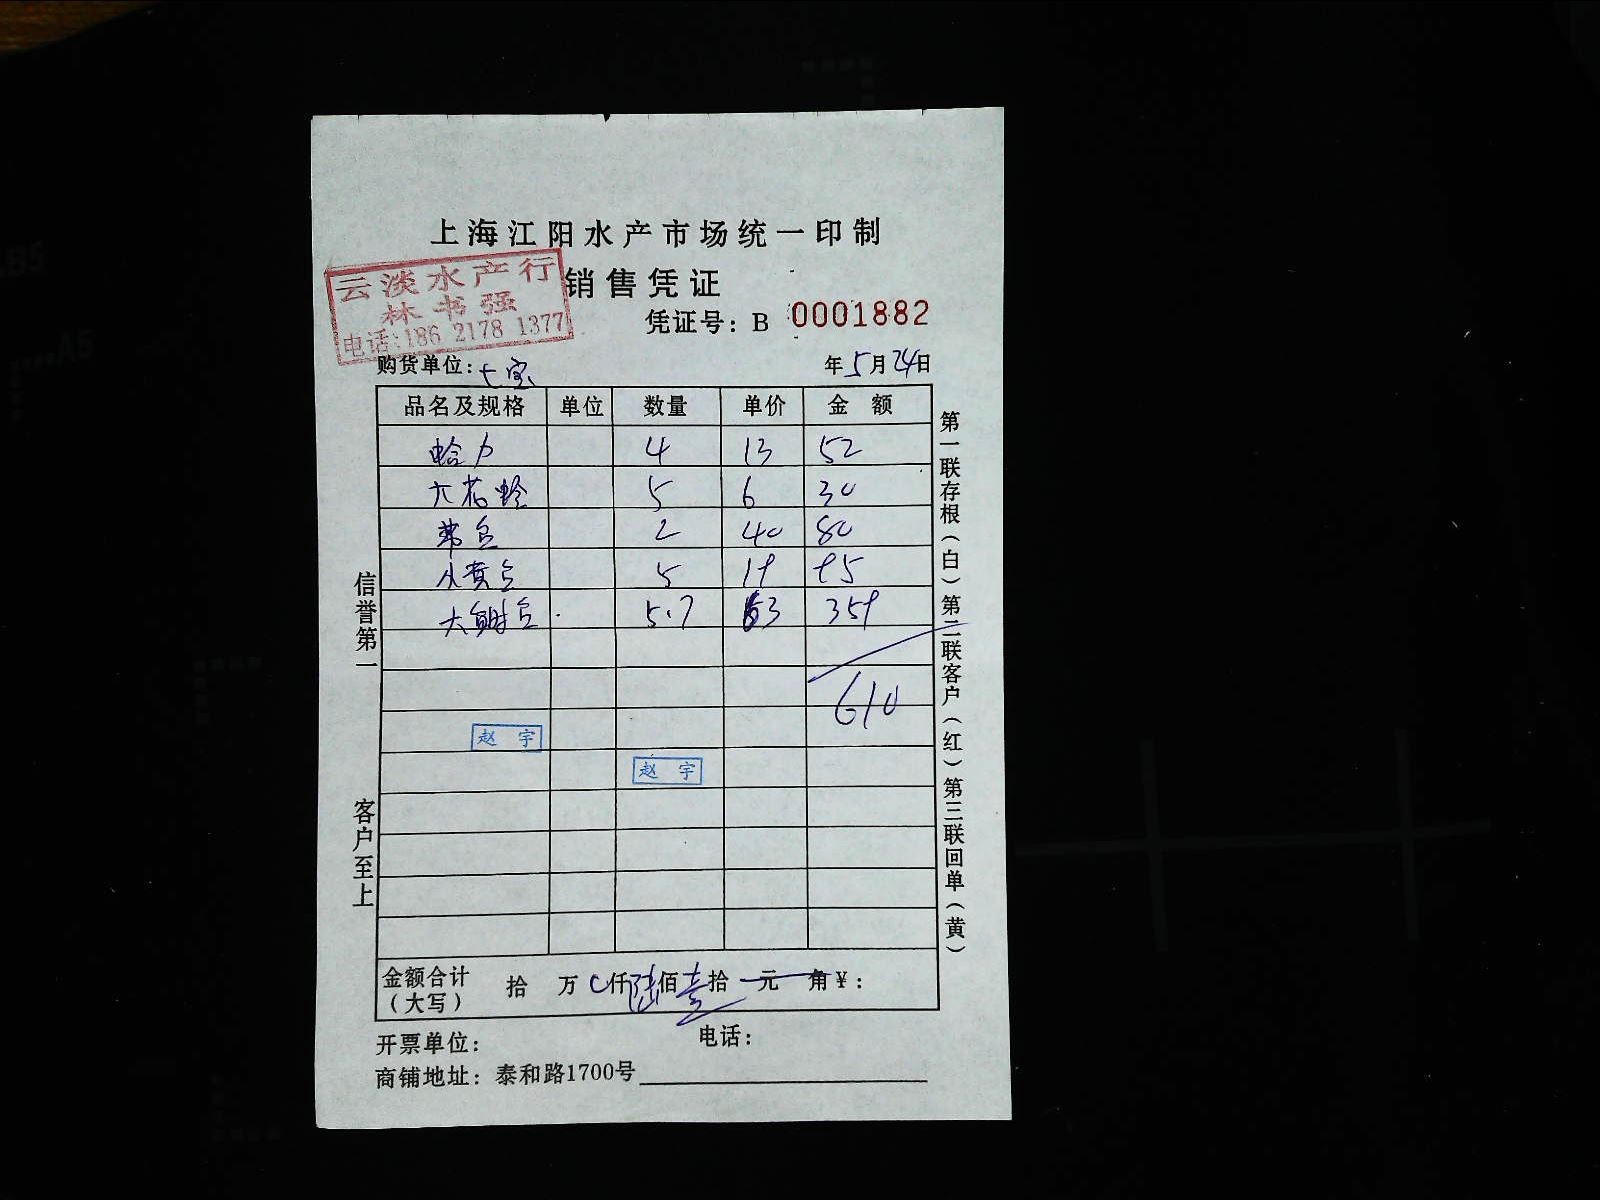 上海江阳水产市场统一印制
销售凭证
云淡水产行
林书强
电话:186 2178 1377
凭证号: B 0001882
购货单位: 七宝
年5月24日
品名及规格 单位 数量 单价 金额
蛤力 4 13 52
六花蛤 5 6 30
2 40 80
小黄鱼 5 19 95
大鲥鱼 5.7 63 359
610
赵宇
赵宇
金额合计 拾 万 仟陆佰壹拾 元 角 ¥:
(大写)
开票单位:
电话:
商铺地址: 泰和路1700号
信誉第一
客户至上
第一联存根(白)第二联客户(红)第三联回单(黄)